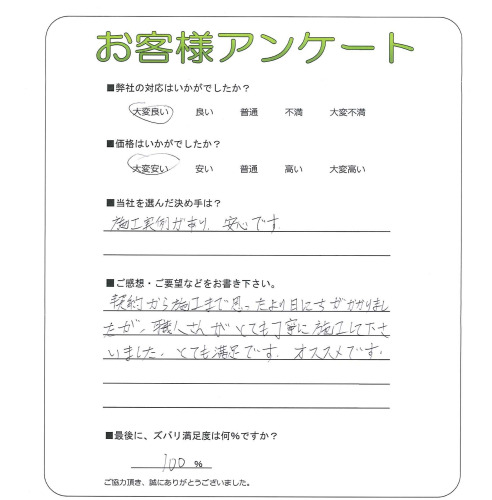 お客様アンケート
■弊社の対応はいかがでしたか？
大変良い 良い 普通 不満 大変不満
■価格はいかがでしたか？
大変安い 安い 普通 高い 大変高い
■当社を選んだ決め手は？
施工実例があり、安心です。
■ご感想・ご要望などをお書き下さい。
契約から施工まで思ったより日にちがかかりまし
たが、職人さんがとても丁寧に施工して下さ
いました。とても満足です。オススメです。
■最後に、ズバリ満足度は何%ですか？
100 %
ご協力頂き、誠にありがとうございました。